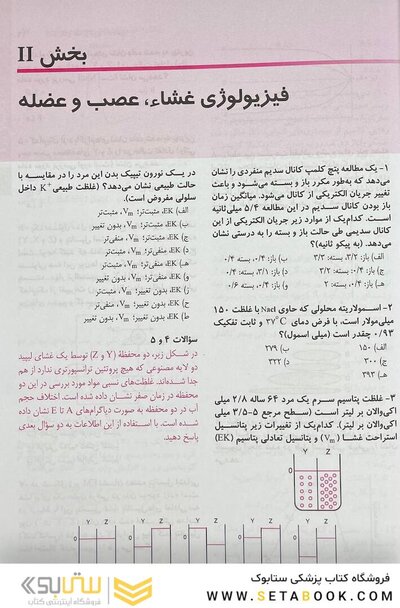 بخش II
فیزیولوژی غشاء، عصب و عضله
۱- یک مطالعه پتچ کلمپ کانال سدیم منفردی را نشان
می‌دهد که به‌طور مکرر باز و بسته می‌شود و باعث
تغییر جریان الکتریکی از کانال می‌شود. میانگین زمان
باز بودن کانال سدیم در این مطالعه ۵/۴ میلی‌ثانیه
است. کدام‌یک از موارد زیر جریان الکتریکی از این
کانال سدیمی طی حالت باز و بسته را به درستی نشان
می‌دهد. (به پیکو ثانیه؟)
الف) باز: ۳/۲، بسته: ۳/۳
ب) باز: ۰/۴، بسته ۰/۴
ج) باز: ۰/۴، بسته: ۳/۲
د) باز: ۳/۱، بسته: ۰/۴
هـ) باز: ۰/۴، بسته: ۲
و) باز: ۰/۴، بسته: ۰/۶
۲- اسمولاریته محلولی که حاوی NaCl با غلظت ۱۵۰
میلی‌مولار است، با فرض دمای ۳۷°C و ثابت تفکیک
۰/۹۳ چقدر است (میلی اسمول)؟
الف) ۱۵۰
ب) ۲۷۹
ج) ۳۰۰
د) ۳۲۲
هـ) ۳۹۳
۳- غلظت پتاسیم سرم یک مرد ۶۴ ساله ۲/۸ میلی
اکی‌والان بر لیتر است (سطح مرجع ۵-۳/۵ میلی
اکی‌والان بر لیتر). کدام‌یک از تغییرات زیر پتانسیل
استراحت غشا (Vm) و پتانسیل تعادلی پتاسیم (EK)
در یک نورون تیپیک بدن این مرد را در مقایسه با
حالت طبیعی نشان می‌دهد؟ (غلظت طبیعی K+ داخل
سلولی مفروض است).
الف) EK، مثبت‌تر؛ Vm، مثبت‌تر
ب) EK، مثبت‌تر؛ Vm، بدون تغییر
ج) EK، مثبت‌تر؛ Vm، منفی‌تر
د) EK، منفی‌تر؛ Vm، مثبت‌تر
هـ) EK، منفی‌تر؛ Vm، منفی‌تر
و) EK، منفی‌تر؛ Vm، بدون تغییر
ز) EK، بدون تغییر؛ Vm، مثبت‌تر
ح) EK، بدون تغییر؛ Vm، منفی‌تر
ط) EK، بدون تغییر؛ Vm، بدون تغییر
سؤالات ۴ و ۵
در شکل زیر، دو محفظهٔ (Y و Z) توسط یک غشای لیپید
دو لایه مصنوعی که هیچ پروتئین ترانسپورتری ندارد از هم
جدا شده‌اند. غلظت‌های نسبی مواد مورد بررسی در این دو
محفظه در زمان صفر نشان داده شده است. اختلاف حجم
آب در دو محفظه به صورت دیاگرام‌های A تا E نشان داده
شده است. با استفاده از این اطلاعات به دو سؤال بعدی
پاسخ دهید.
Y Z
0
Y Z Y Z Y Z Y Z Y Z
0
فروشگاه کتاب پزشکی ستابوک
WWW.SETABOOK.COM
ستابوک
فروشگاه اینترنتی کتاب